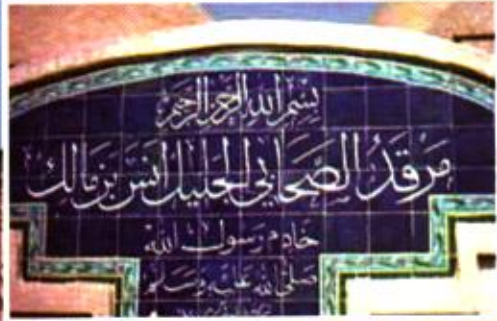 بسم الله الرحمن الرحيم
مرقد الصحابي الجليل انس بن مالك
خادم رسول الله
صلى الله عليه وسلم